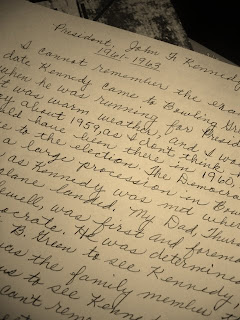 President, John F. Kennedy
1961-1963
I cannot remember the exact
date Kennedy came to Bowling Green
when he was running for Presid
it was warm weather, and I wa
y about 1959, as I don't think
uld have been there in 1960,
se to the election. The Democra
a large procession in Bow
as Kennedy was not when
plane landed. My Dad, Thur
ewell was first and foremos
ocrate. He was determined
B. Green to see Kennedy
was the family member th
us to see Kenn
can't reme